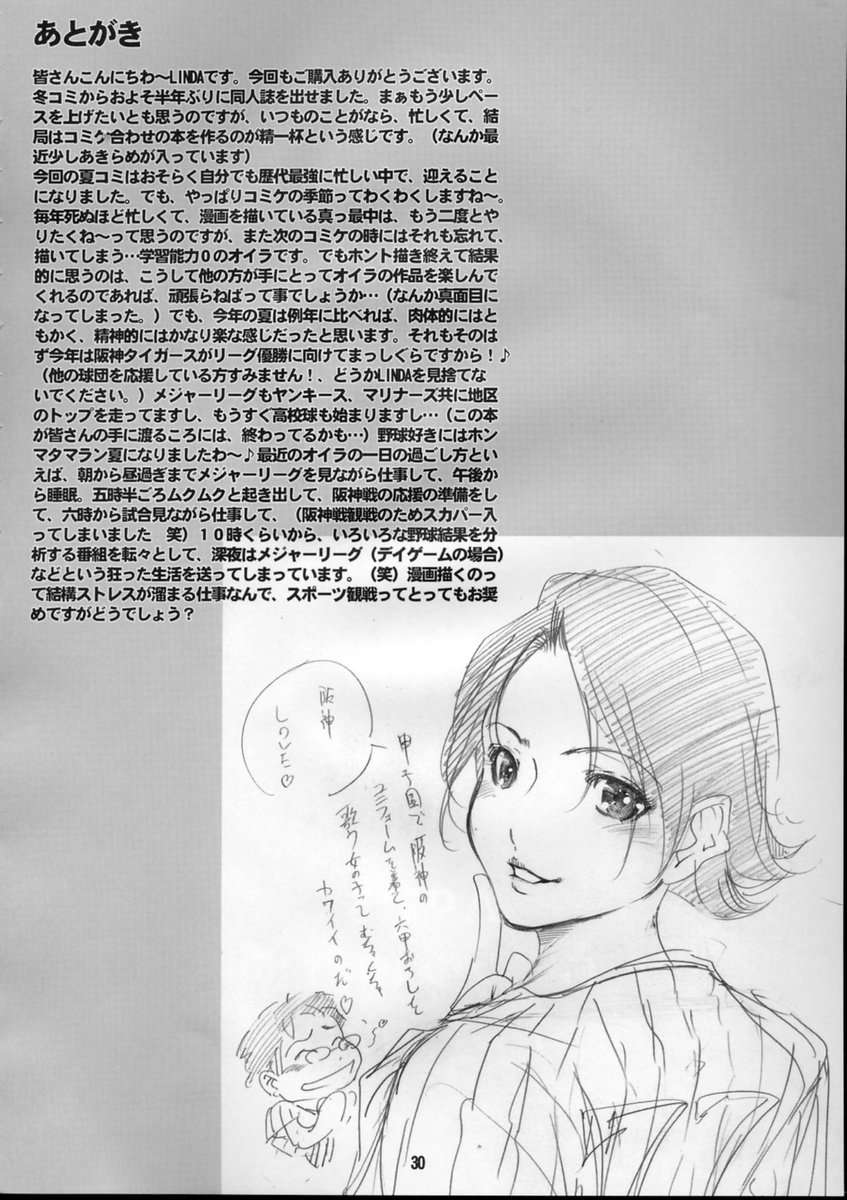 あとがき
皆さんこんにちわ～LINDAです。今回もご購入ありがとうございます。
冬コミからおよそ半年ぶりに同人誌を出せました。まぁもう少しペー
スを上げたいとも思うのですが、いつものことがなら、忙しくて、結
局はコミケ合わせの本を作るのが精一杯という感じです。（なんか最
近少しあきらめが入っています）
今回の夏コミはおそらく自分でも歴代最強に忙しい中で、迎えること
になりました。でも、やっぱりコミケの季節ってわくわくしますね～。
毎年死ぬほど忙しくて、漫画を描いている真っ最中は、もう二度とや
りたくね～って思うのですが、また次のコミケの時にはそれも忘れて、
描いてしまう…学習能力０のオイラです。でもホント描き終えて結果
的に思うのは、こうして他の方が手にとってオイラの作品を楽しんで
くれるのであれば、頑張らねばって事でしょうか…（なんか真面目に
なってしまった。）でも、今年の夏は例年に比べれば、肉体的にはと
もかく、精神的にはかなり楽な感じだったと思います。それもそのは
ず今年は阪神タイガースがリーグ優勝に向けてまっしぐらですから！♪
（他の球団を応援している方すみません！、どうかLINDAを見捨てな
いでください。）メジャーリーグもヤンキース、マリナーズ共に地区
のトップを走ってますし、もうすぐ高校球も始まりますし…（この本
が皆さんの手に渡るころには、終わってるかも…）野球好きにはホン
マタマラン夏になりましたわ～♪最近のオイラの一日の過ごし方とい
えば、朝から昼過ぎまでメジャーリーグを見ながら仕事して、午後か
ら睡眠。五時半ごろムクムクと起き出して、阪神戦の応援の準備をし
て、六時から試合見ながら仕事して、（阪神戦観戦のためスカパー入
ってしまいました　笑）１０時くらいから、いろいろな野球結果を分
析する番組を転々として、深夜はメジャーリーグ（デイゲームの場合）
などという狂った生活を送ってしまっています。（笑）漫画描くのっ
て結構ストレスが溜まる仕事なんで、スポーツ観戦ってとってもお奨
めですがどうでしょう？
甲子園で阪神の
ユニフォームを着て、六甲おろしを
歌う女の子って
カワイイのだ♡
阪神
30